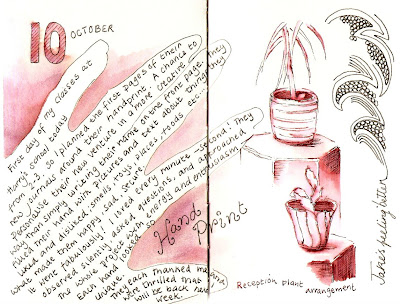 10 OCTOBER
First day of my classes at
Harry's school today
from 2-3. so I planned the first pages of their
new journals around their handprint. A chance to
personalise their new venture in a more creative
way than simply writing their name on the front page.
filled their hand with pictures and text about things they
liked and disliked, smells, toys, places, foods etc..
what made them happy, sad, secure....
It went fabulously! I loved every minute - second! They
observed silently, asked questions, and approached
the whole project with energy and enthusiasm
Each hand looked so
unique.
They each thanked me and
are thrilled that
I will be back next
week.
Hand
Print
Reception plant
arrangement
Jake's feeling better